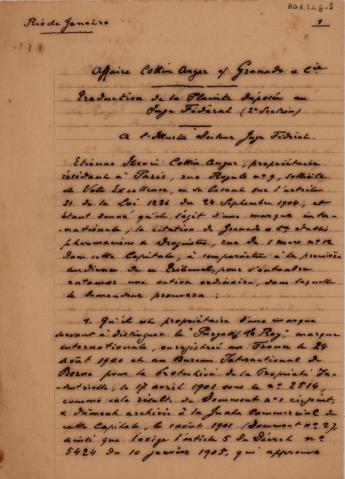 AGd.26.6-5
Rio de Janeiro
1
Affaire Cottin Anger c/ Granado & Cie
Traduction de la Plainte déposée au
Juge Fédéral (2e Section)
A l'Illustre Docteur Juge Fédéral.
Etienne Henri Cottin Anger, propriétaire
résidant à Paris, rue Royale no 9, sollicite
de Votre Excellence, en se basant sur l'article
31 de la Loi 1236 du 24 Septembre 1904, et
étant donné qu'il s'agit d'une marque inter-
nationale, la citation de Granado & Cie établis
pharmaciens & Droguistes, rue du 1 mars no 12
dans cette Capitale, à comparaître à la première
audience de ce Tribunal, pour s'entendre
entamer une action ordinaire, dans laquelle
le demandeur prouvera :
1. Qu'il est propriétaire d'une marque
servant à distinguer le "Purgatif Le Roy" marque
internationale, enregistrée en France le 24
août 1900 et au Bureau International de
Berne pour la Protection de la Propriété In-
dustrielle, le 17 avril 1901 sous le no 2514,
comme cela résulte du Document no 1 cijoint,
& dûment archivée à la Junte Commercial de
cette Capitale, le août 1901 (Document no 2),
ainsi que l'exige l'article 5 du Décret no
5424 du 10 janvier 1905, qui approuve